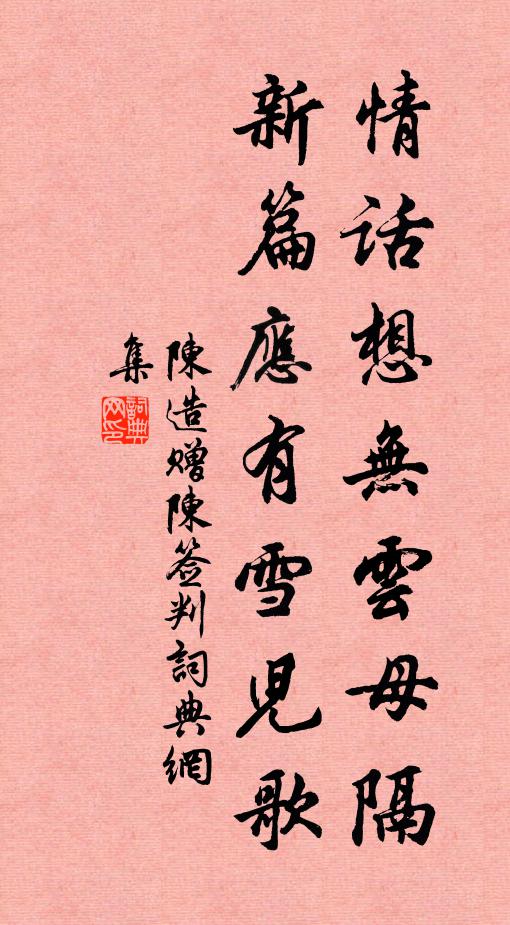 情話想無雲母隔
新篇應有雪兒歌
陳造贈陳簽判詞典網
集
詞典
网印